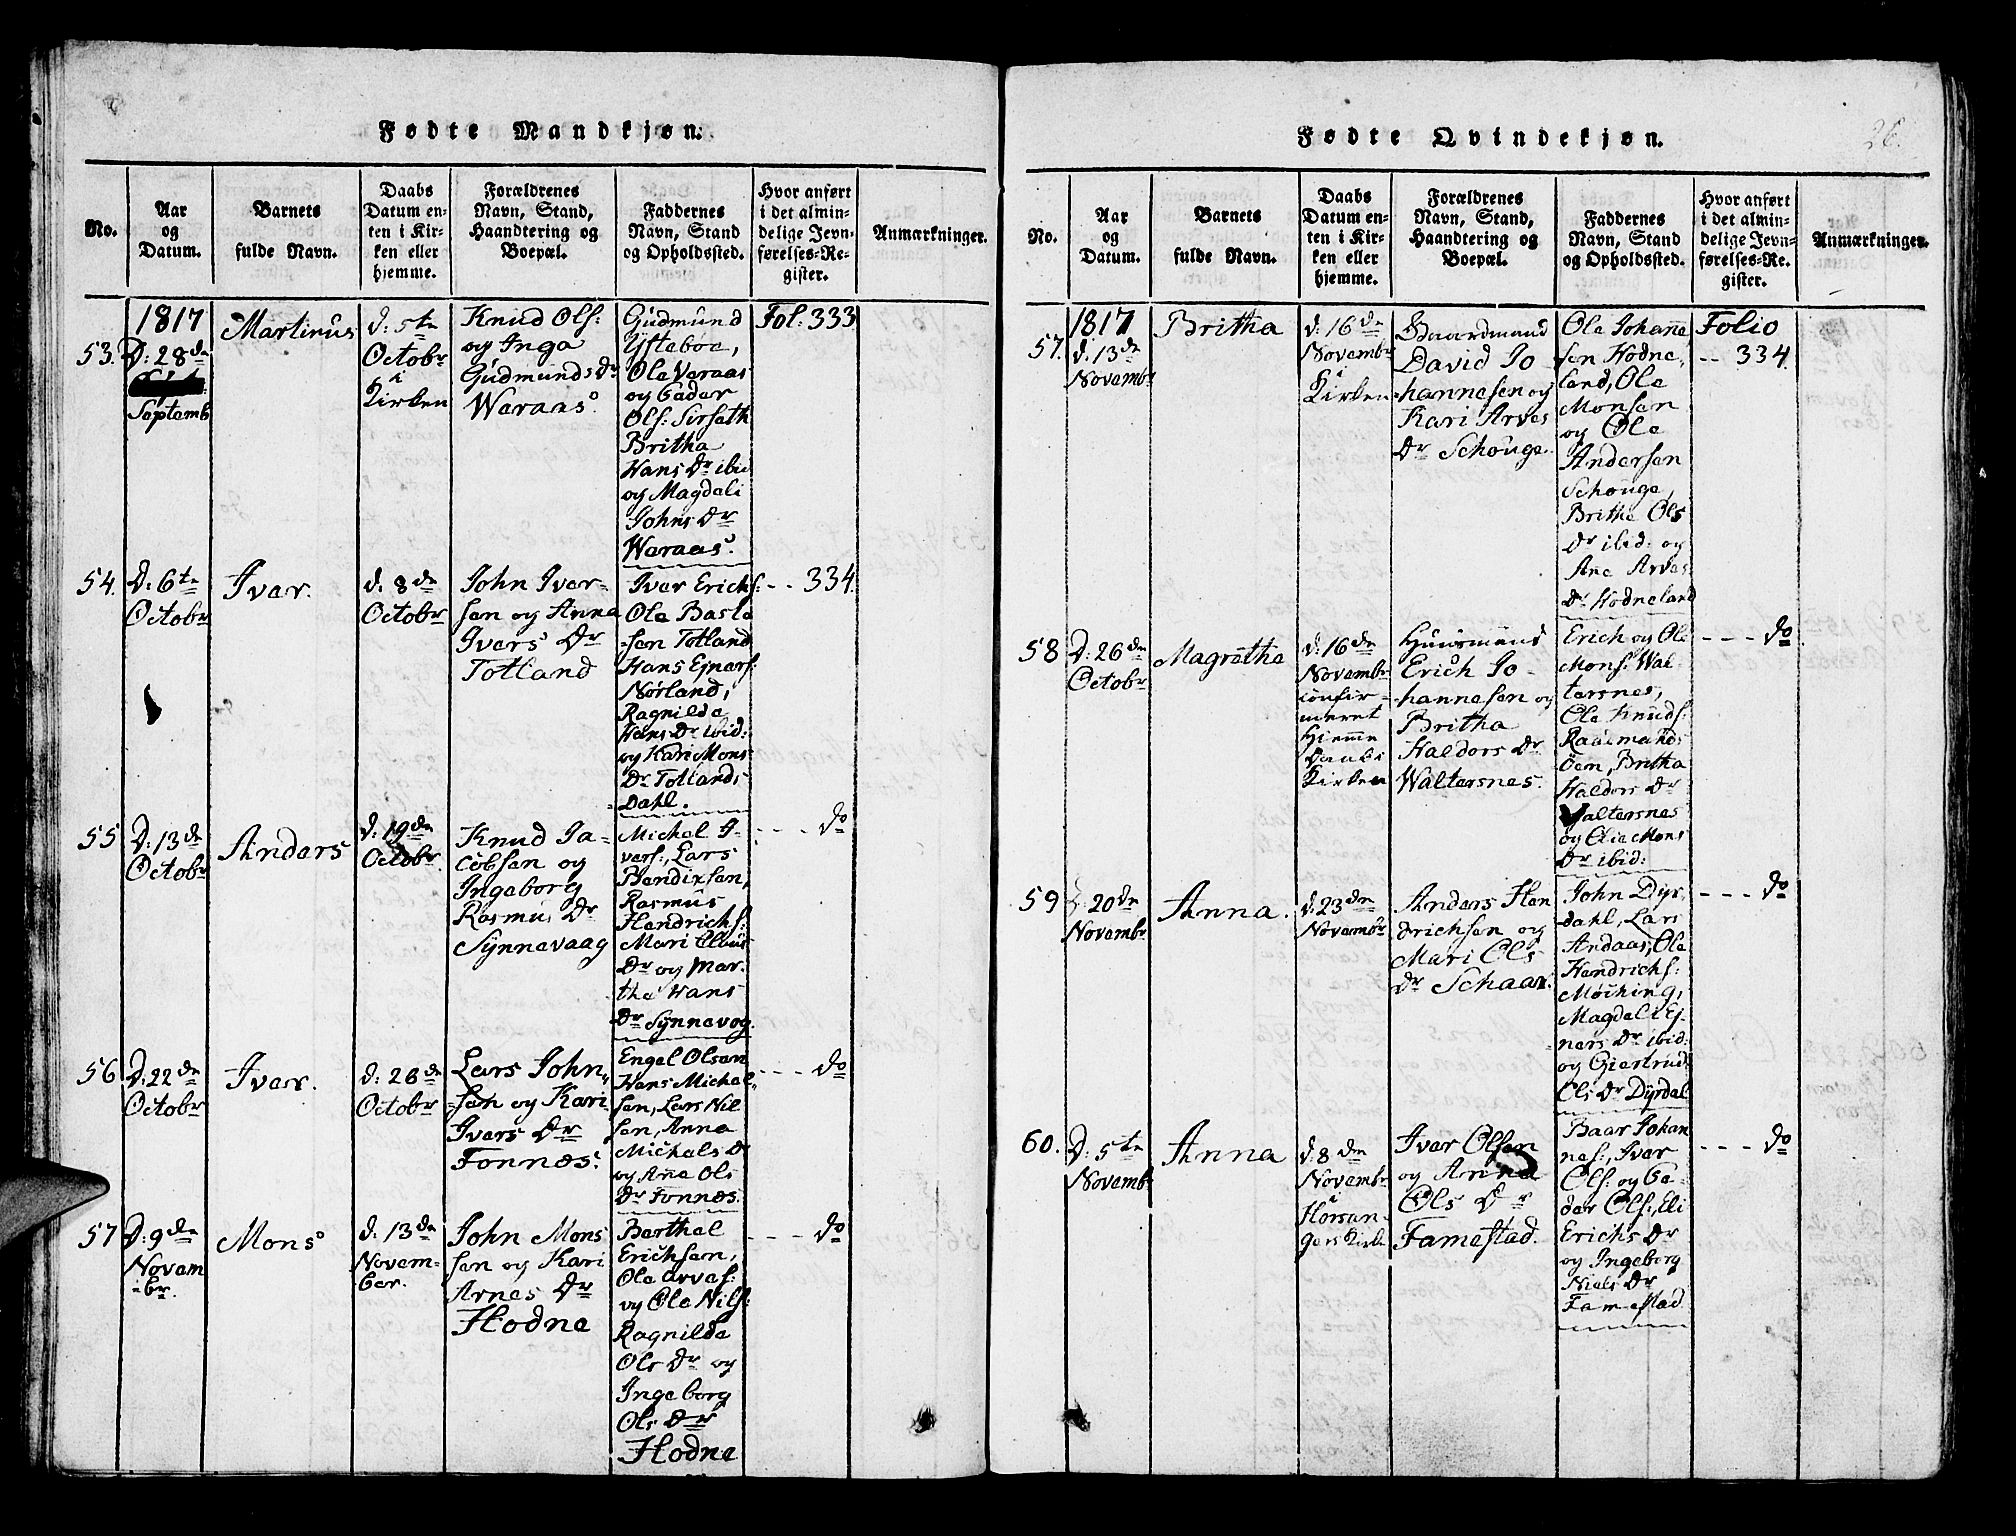 Fødte Mandkjøn.
No.
Aar
og
Datum.
Barnets
fulde Navn.
Daabs
Datum en-
ten i Kir-
ken eller
hjemme.
Forældrenes
Navn, Stand,
Haandtering og
Boepæl.
Faddernes
Navn, Stand
og Opholdssted.
Hvor anført
i det almin-
delige Jevn-
førelses-Re-
gister.
Anmærkninger.
53.
1817
D: 28de
Septemb
Martinus
d: 5te
Octobr
i
Kirken
Knud Ols:
og Inga
Gudmunds Dr
Waraas.
Gudmund
Ysteboe,
Ole Varaas
og Gader
Ols: Sirseth
Britha
Hans Dr ibid
og Magdeli
Johns Dr
Waraas.
Fol: 333
54.
D: 6te
Octobr
Ivar.
d. 8de
Octobr
John Iver-
sen og Anna
Ivers Dr
Totland
Iver Erichs:
Ole Basle
sen Totland
Hans Ejners:
Norland,
Ragnilda
Hans Dr ibid:
og Kari Mons
Dr Totlands
Dahl.
- - 334.
55
D: 13de
Octobr
Anders
d: 19de
Octobr.
Knud Ja-
cobsen og
Ingeborg
Rasmus Dr
Synnevaag
Michel I-
vers:, Lars
Bendixsen,
Rasmus
Hendrichs:
Mari Claus
Dr og Mar-
the Hans
Dr Synnevog.
- - - do
56
D: 22de
Octobr
Ivar.
d: 26de
Octobr
Lars John-
sen og Kari
Ivers Dr
Fonnes.
Engel Olsen
Hans Michel-
sen, Lars Nil
sen, Anna
Michels Dr
og Ane Ols
Dr Fonnes.
- - - do
57
D: 9de
Novem
br.
Mons
d. 13de
Novem-
ber.
John Mons
sen og Kari
Arnes Dr
Hodne
Berthel
Erichsen,
Ole Arves:
og Ole Nils:
Ragnilda
Ols Dr og
Ingeborg
Ols Dr
Hodne
- - - do
Fødte Qvindekjøn.
26.
No.
Aar
og
Datum.
Barnets
fulde Navn.
Daabs
Datum en-
ten i Kir-
ken eller
hjemme.
Forældrenes
Navn, Stand,
Haandtering og
Boepæl.
Faddernes
Navn, Stand
og Opholdssted.
Hvor anført
i det almin-
delige Jevn-
førelses-Re-
gister.
Anmærkninger.
57.
1817
d. 13de
Novembr
Britha
d: 16de
Novembr
i
Kirken
Gaardmand
David Jo
hannesen og
Kari Arves
Dr Schouge.
Ole Johanne
sen Hodne-
land, Ole
Monsen
og Ole
Andersen
Schouge,
Britha Ols
Dr ibid: og
Ane Arves
Dr Hodneland
Folio
- - 334.
58
D: 26de
Octobr
Magretha
d: 16de
Novembr
confir-
meret
Hiemme
Daabs i
Kirken
Huusmand
Erich Jo-
hannesen og
Britha
Haldors Dr
Waltersnes.
Erich og Ole
Mons: Wal-
tersnes,
Ole Knuds:
Raaemands
Øen, Britha
Haldors Dr
Valtersnes
og Olie Mons
Dr ibid:
- - - do
59
20de
Novembr
Anna.
d: 23de
Novembr
Anders Hen
drichsen og
Mari Ols
Dr Schaar.
John Dyr-
dahl, Lars
Andaas, Ole
Hendrichs:
Møching,
Magdeli Ej-
ners Dr ibid:
og Giertrud
Ols Dr Dyrdal
- - - do
60.
D: 5te
Novembr
Anna
d: 8de
Novembr
i
Horsan-
gers Kirke
Ivar Olsen
og Anna
Ols Dr
Famestad.
Baar Johan
nes:, Iver
Ols: og Ga-
der Ols:, Eli
Erichs Dr
og Ingeborg
Niels Dr
Famestad
- - - do